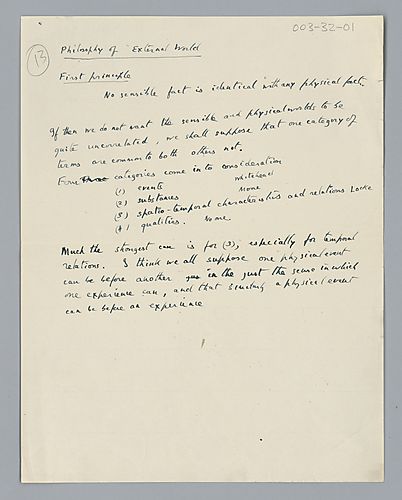 003-32-01
13
Philosophy of External World
First principle
No sensible fact is identical with any physical fact.
If then we do not want the sensible and physical worlds to be
quite uncorrelated, we shall suppose that one category of
terms are common to both others not.
Four Three categories come into consideration
(1) events Whitehead
(2) substances None
(3) spatio-temporal characteristics and relations Locke
(4) qualities. None.
Much the strongest case is for (3), especially for temporal
relations. I think we all suppose one physical event
can be before another in just the sense in which
one experience can, and that similarly a physical event
can be before an experience